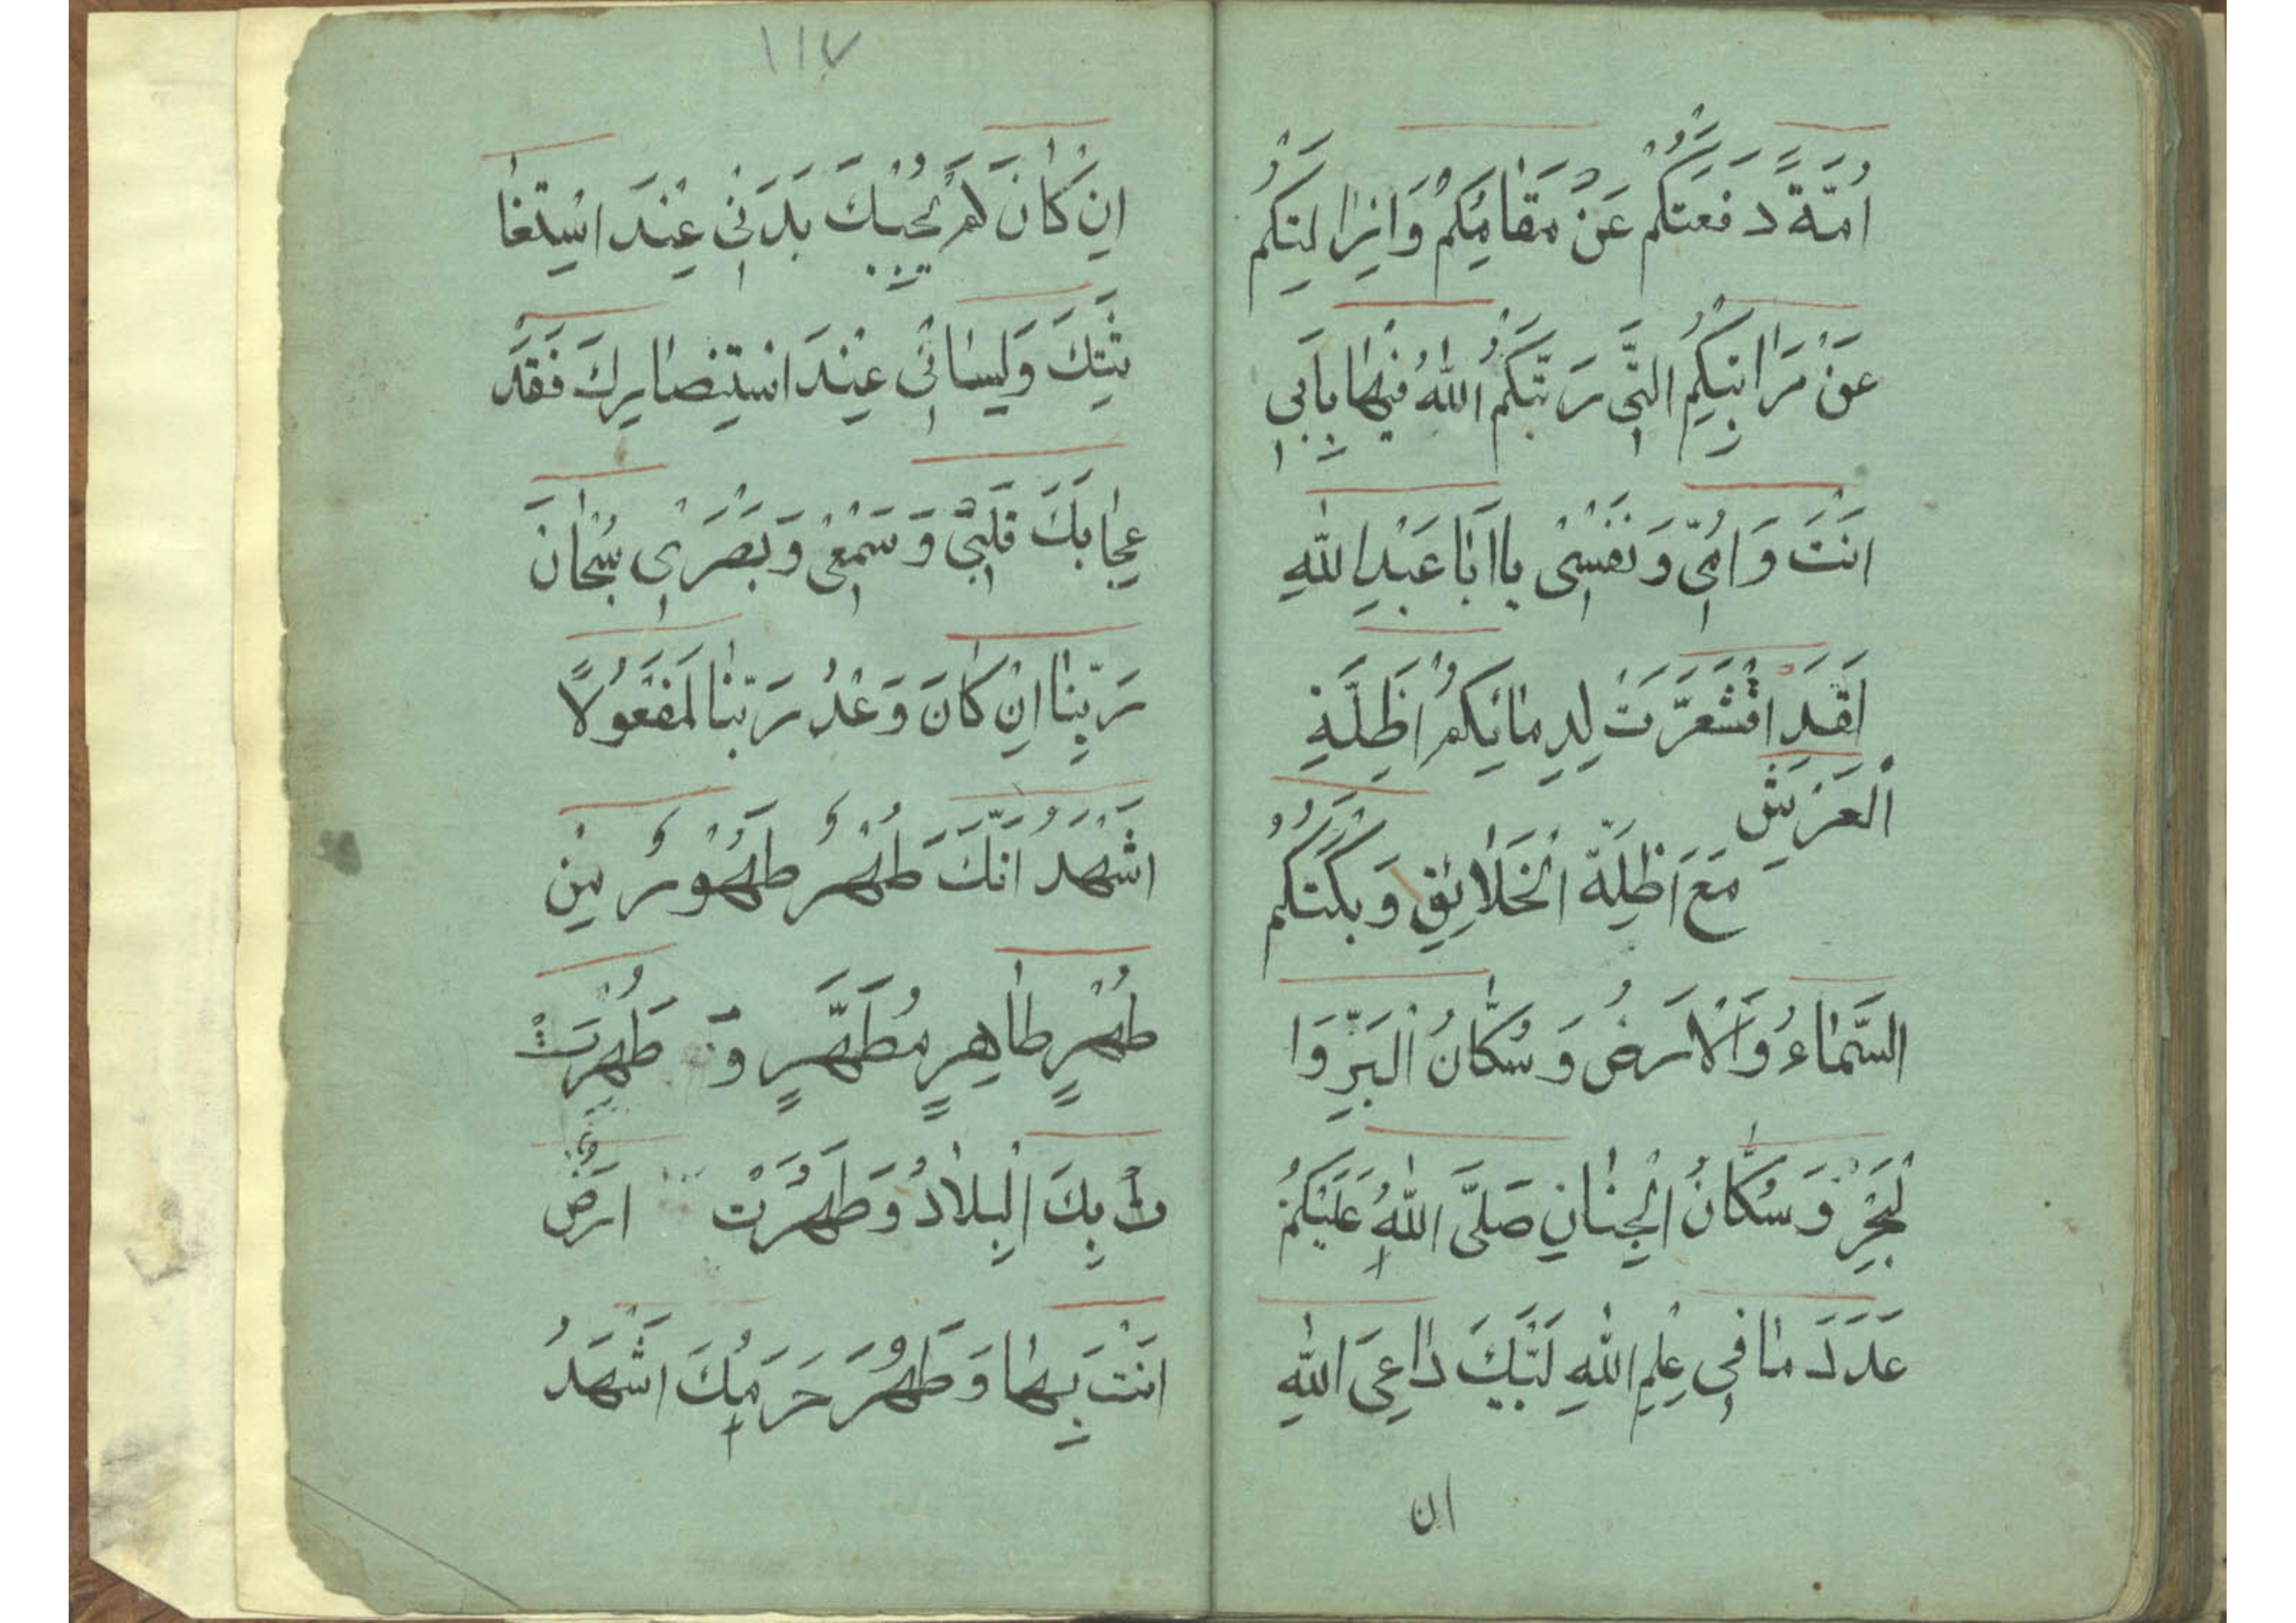 اُمَّةً دَفَعَتْكُمْ عَنْ مَقَامِكُمْ وَاَزَالَتْكُمْ
عَنْ مَرَاتِبِكُمُ الَّتِی رَتَّبَكُمُ اللّٰهُ فِیْهَا بِاَبِی
اَنْتَ وَاُمِّی وَنَفْسِیْ یَا اَبَا عَبْدِ اللّٰهِ
لَقَدِ اقْشَعَرَّتْ لِدِمَائِكُمْ اَظِلَّةِ
الْعَرْشِ
مَعَ اَظِلَّةِ الْخَلَائِقِ وَبَكَتْكُمْ
السَّمَاءُ وَالْاَرْضُ وَسُكَّانُ الْبَرِّ وَا
لْبَحْرِ وَسُكَّانُ الْجِنَانِ صَلَّی اللّٰهُ عَلَیْكُمْ
عَدَدَ مَا فِی عِلْمِ اللّٰهِ لَبَّیْكَ دَاعِیَ اللّٰهِ
ان
١١٧
اِنْ كَانَ لَمْ یُجِبْكَ بَدَنِیْ عِنْدَ اسْتِغَا
ثَتِكَ وَلِسَانِیْ عِنْدَ اسْتِنْصَارِكَ فَقَدْ
اَجَابَكَ قَلْبِیْ وَسَمْعِیْ وَبَصَرِیْ سُبْحَانَ
رَبِّنَا اِنْ كَانَ وَعْدُ رَبِّنَا لَمَفْعُوْلًا
اَشْهَدُ اَنَّكَ طُهْرٌ طَهُوْرٌ مِنْ
طُهْرٍ طَاهِرٍ مُطَهَّرٍ وَ طَهُرَتْ
تْ بِكَ الْبِلَادُ وَطَهُرَتْ اَرْضٌ
اَنْتَ بِهَا وَطَهُرَ حَرَمُكَ اَشْهَدُ